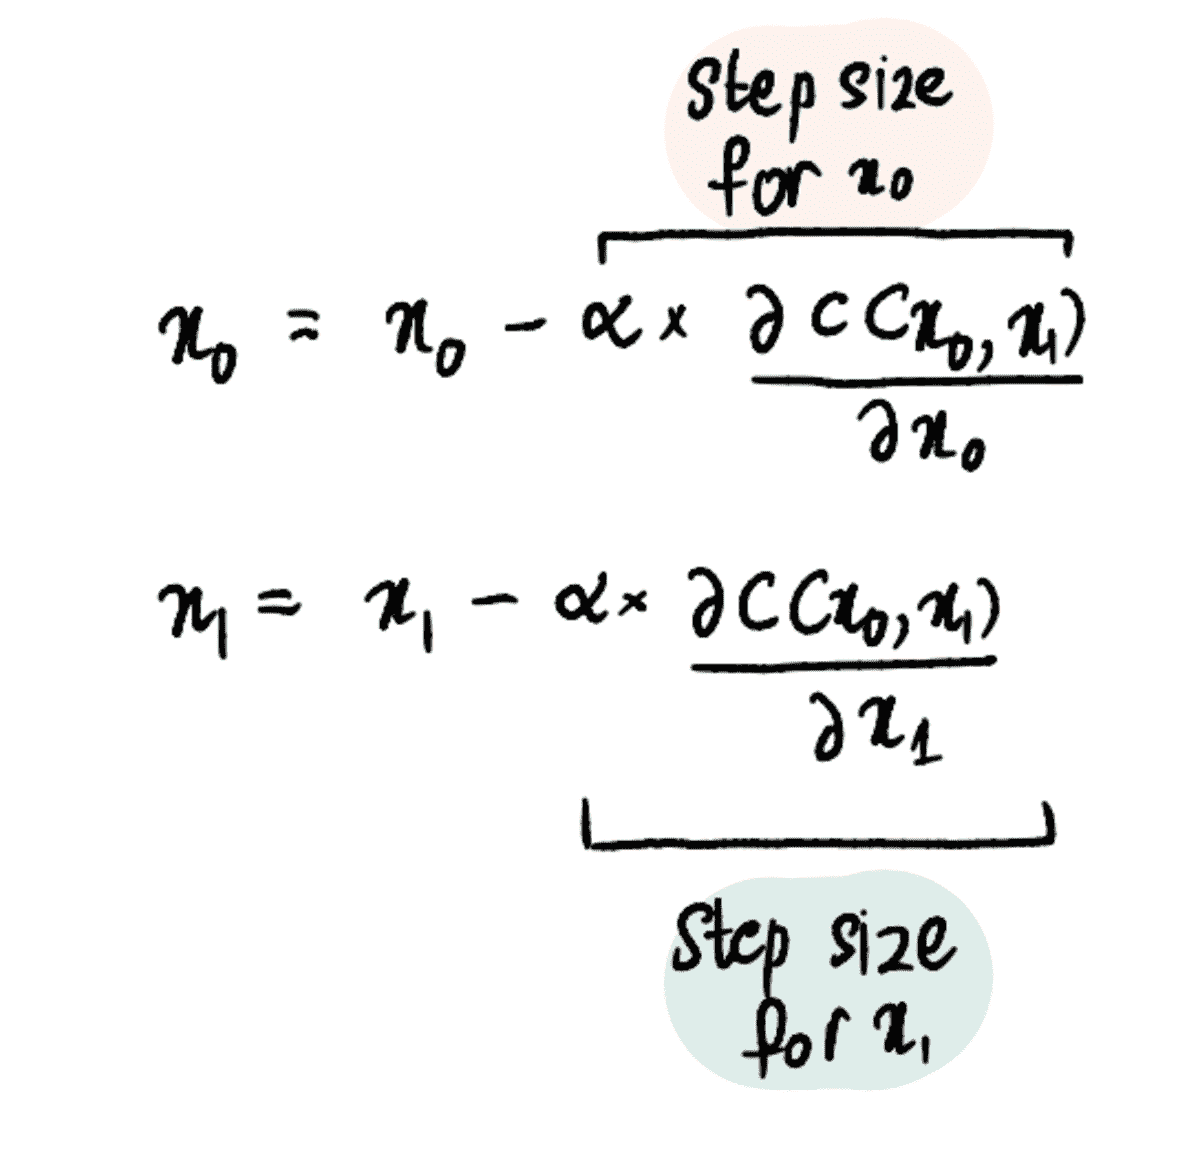 Step size
for x₀
x₀ = x₀ - α × ∂C(x₀, x₁)
∂x₀
x₁ = x₁ - α × ∂C(x₀, x₁)
∂x₁
Step size
for x₁